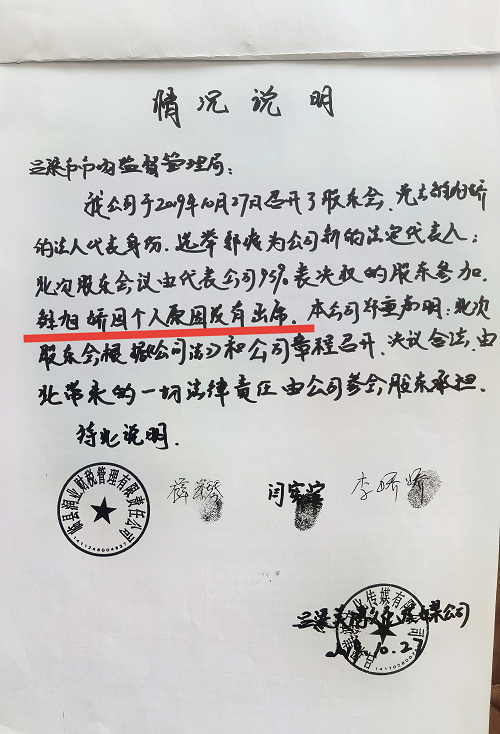 情况说明
吕梁市市场监督管理局:
我公司于2019年10月27日召开了股东会.免去旭娇
的法人代表身份.选举为公司新的法定代表人;
此次股东会议由代表公司95%表决权的股东参加.
旭娇因个人原因没有出席.本公司郑重声明:此次
股东会根据《公司法》和公司章程召开.决议合法.由
此带来的一切法律责任由公司参会股东承担.
特此说明.
临县润业财税管理有限责任公司
1411248004937
薛 闫宾 李娇娇
吕梁文化传媒公司
10.27
业传媒有限